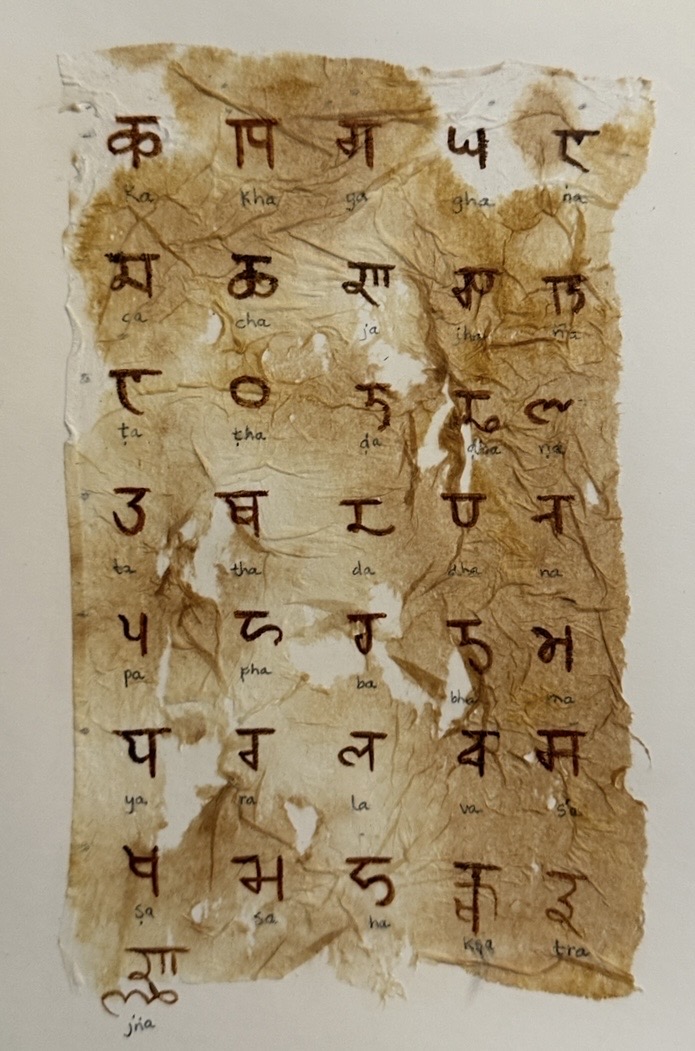 𑐎 𑐏 𑐐 𑐑 𑐒
ka kha ga gha ṅa
𑐔 𑐕 𑐖 𑐗 𑐘
ca cha ja jha ña
𑐚 𑐛 𑐜 𑐝 𑐞
ṭa ṭha ḍa ḍha ṇa
𑐟 𑐠 𑐡 𑐢 𑐣
ta tha da dha na
𑐥 𑐦 𑐧 𑐨 𑐩
pa pha ba bha ma
𑐫 𑐬 𑐮 𑐰 𑐱
ya ra la va śa
𑐲 𑐳 𑐴 𑐎𑑂𑐲 𑐟𑑂𑐬
ṣa sa ha kṣa tra
𑐖𑑂𑐘
jña